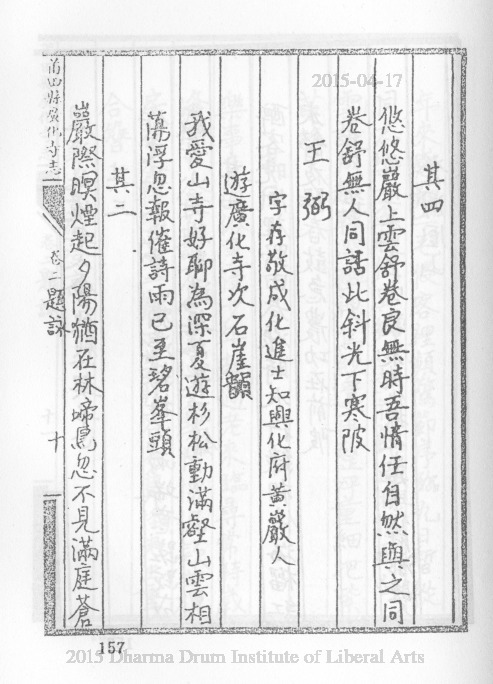 2015-04-17
其四
悠悠巖上雲舒卷良無時吾情任自然與之同
卷舒無人同話此斜光下寒陂
王弼
字存敬成化進士知興化府黃巖人
遊廣化寺次石崖韻
我愛山寺好聊為深夏遊杉松動滿壑山雲相
蕩浮忽報催詩雨已至碧峯頭
其二
巖際暝煙起夕陽猶在林啼鳥忽不見滿庭蒼
莆田縣廣化寺志
卷二 題詠
十
157
2015 Dharma Drum Institute of Liberal Arts